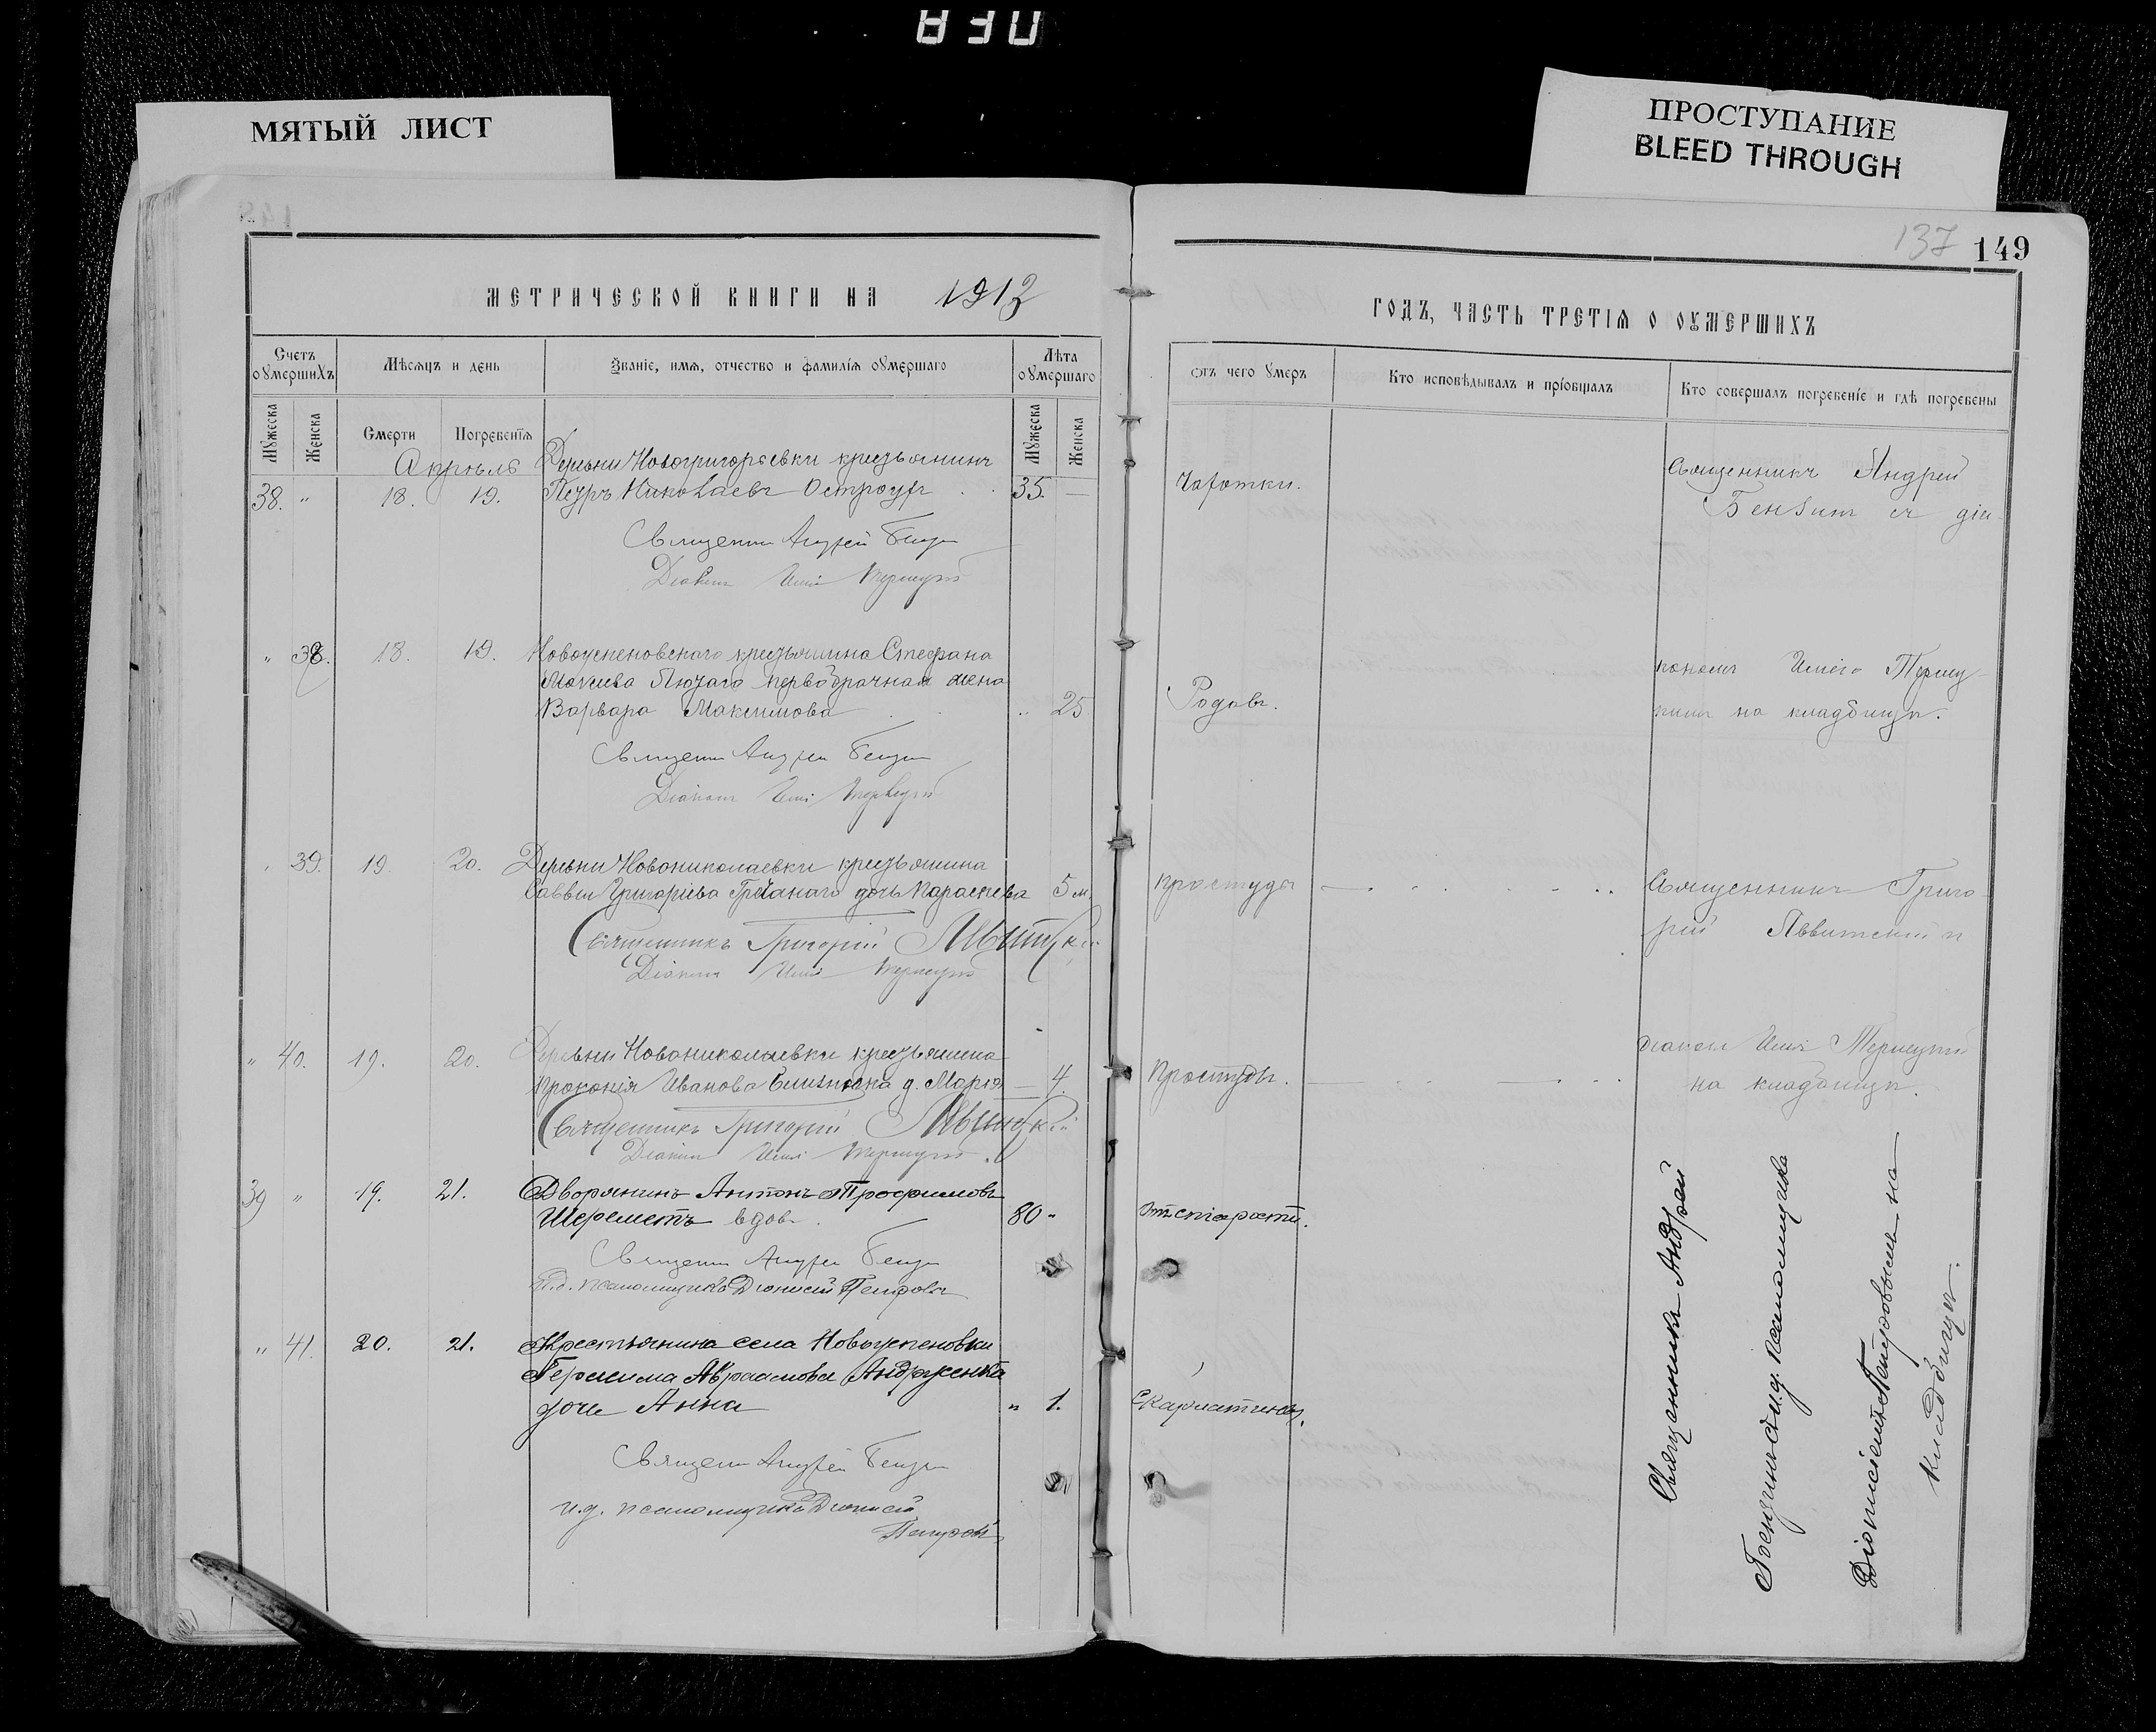 МЯТЫЙ ЛИСТ
ПРОСТУПАНИЕ
BLEED THROUGH
137 149
МЕТРИЧЕСКОЙ КНИГИ НА 1912
ГОДЪ, ЧАСТЬ ТРЕТІЯ О ОУМЕРШИХЪ
Счетъ оумершихъ
Мѣсяцъ и день
Званіе, имя, отчество и фамилія оумершаго
Лѣта оумершаго
Отъ чего умеръ
Кто исповѣдывалъ и пріобщалъ
Кто совершалъ погребеніе и гдѣ погребены
Мужеска Женска Смерти Погребенія Мужеска Женска
Апрѣль Деревни Новогригорьевки крестьянинъ
38. " 18. 19. Петръ Николаевъ Остроухъ 35. — Чахотки.
Священникъ Андрей
Бензинъ съ діа-
Священникъ Андрей Бензинъ
Діаконъ Илія
" 38. 18. 19. Новоуспеновскаго крестьянина Стефана
Мокиева Лютаго первобрачная жена
Варвара Максимова " 25. Родовъ.
кономъ Иліею
на кладбищѣ.
Священникъ Андрей Бензинъ
Діаконъ Илія
" 39. 19. 20. Деревни Новониколаевки крестьянина
Саввы Григоріева Гречанаго дочь Параскева 5 м. простуды
Священникъ Григо-
рій Левитскій и
Священникъ Григорій Левитскій
Діаконъ Илія
" 40. 19. 20. Деревни Новониколаевки крестьянина
Прокопія Иванова д. Марія — 4. Простуды.
діаконъ Илія
на кладбищѣ.
Священникъ Григорій Левитскій
Діаконъ Илія
39 " 19. 21. Дворянинъ Антонъ Трофимовъ
Шереметъ вдов. 80 " Отъ старости.
Священникъ Андрей Бензинъ
И.д. псаломщика Діонисій Петровъ
" 41. 20. 21. Крестьянина села Новоуспеновки
Герасима Авраамова Андрженка
дочь Анна " 1. Скарлатины.
Священникъ Андрей Бензинъ
и.д. псаломщика Діонисій
Петровъ
Священникъ Андрей
Бензинъ съ и.д. псаломщика
Діонисіемъ Петровымъ на
кладбищѣ.